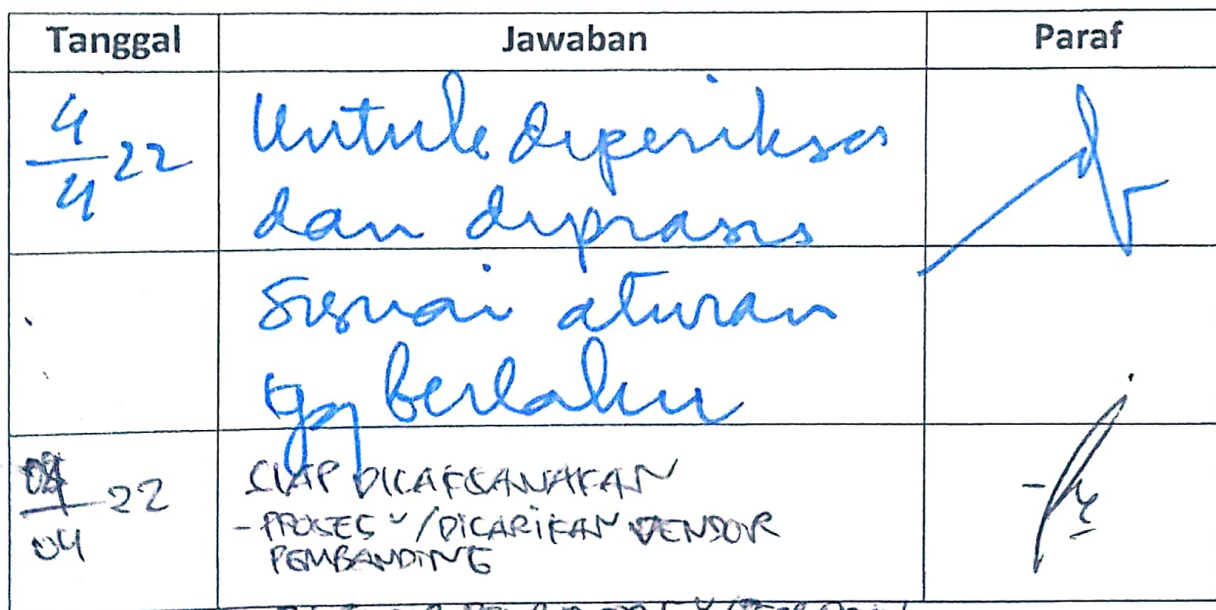 Tanggal Jawaban Paraf
4/4 22 Untuk diperiksa
dan diproses
Sesuai aturan
yg berlaku
/04 22 SIAP DILAKSANAKAN
- PROSES U/DICARIKAN VENDOR
PEMBANDING